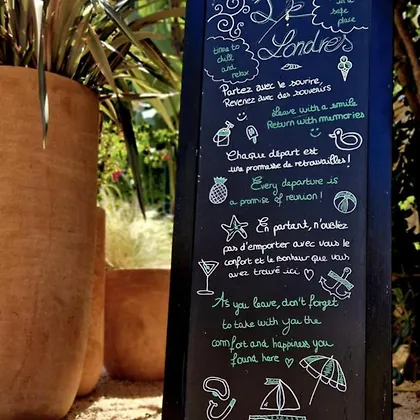 in a
safe
place
time to
chill
and
relax
Londres
Partez avec le sourire,
Revenez avec des souvenirs
Leave with a smile
Return with memories
Chaque départ est
une promesse de retrouvailles!
Every departure is
a promise of reunion!
En partant, n'oubliez
pas d'emporter avec vous le
confort et le bonheur que vous
avez trouvé ici
As you leave, don't forget
to take with you the
comfort and happiness you
found here